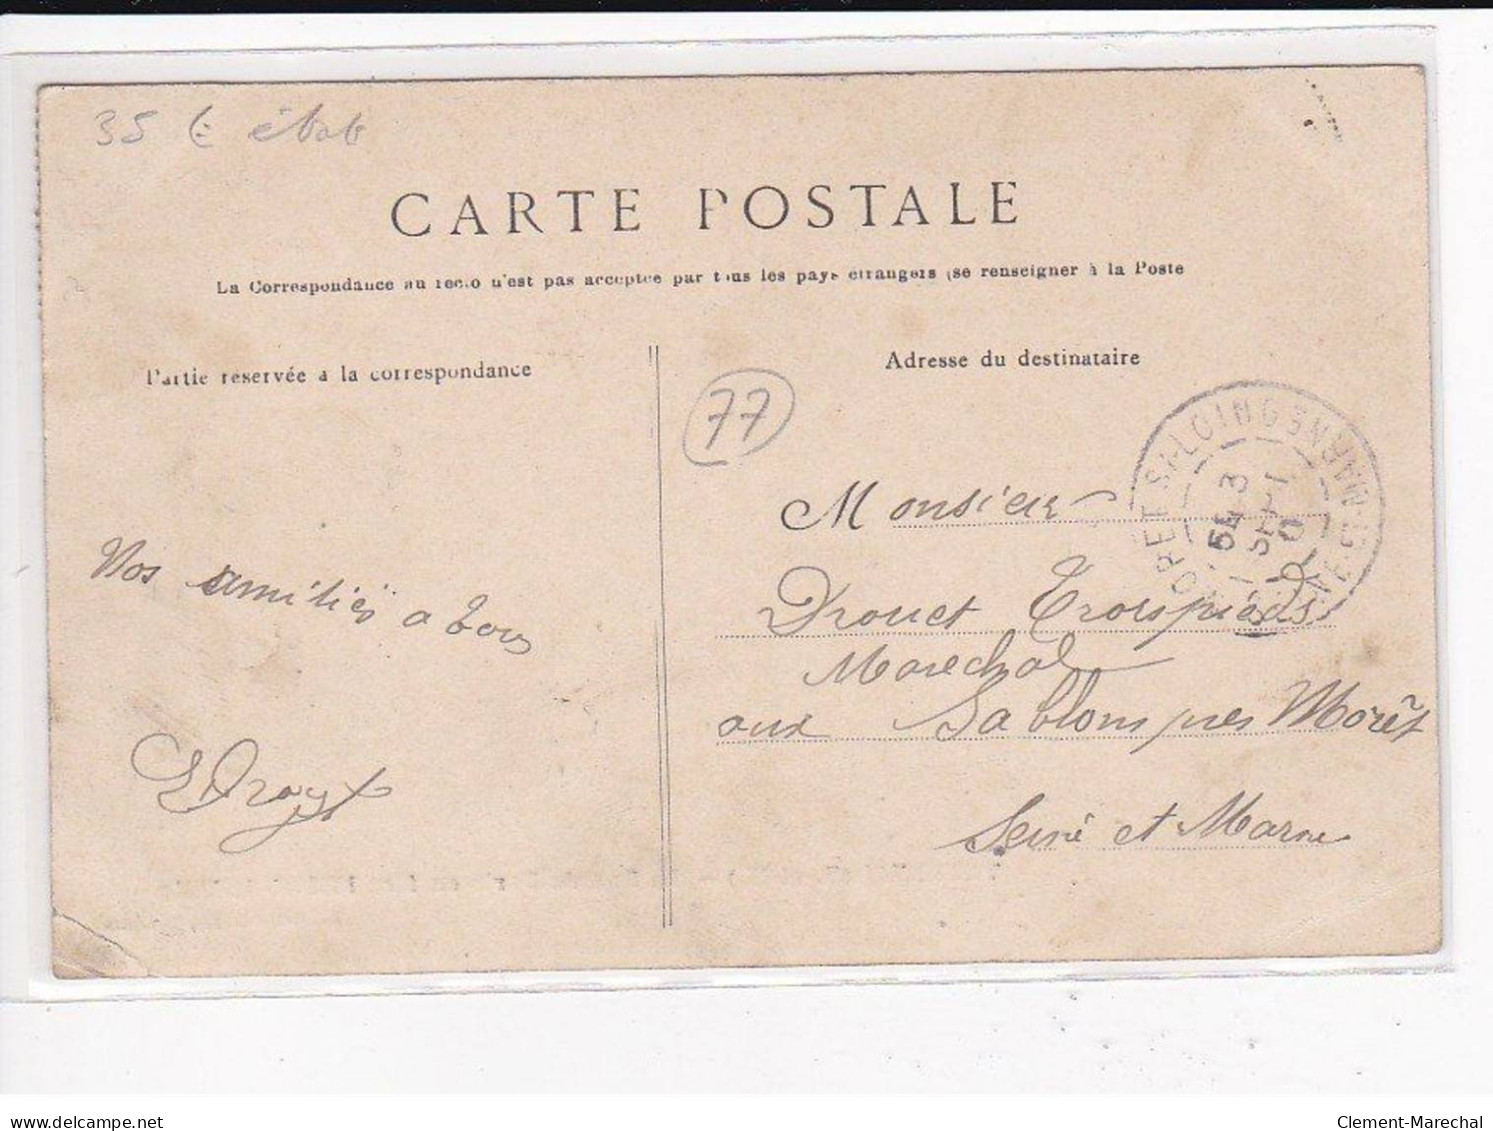 35 € état
CARTE POSTALE
La Correspondance au recto n'est pas acceptée par tous les pays étrangers (se renseigner à la Poste
Partie réservée à la correspondance
Adresse du destinataire
77
MORET-S-LOING SEINE-ET-MARNE
Monsieur
Drouet Troispieds
Marechal
aux Sablons près Morêt
Seine et Marne
Nos amitiés a tous
delcampe.net
Clement-Marechal